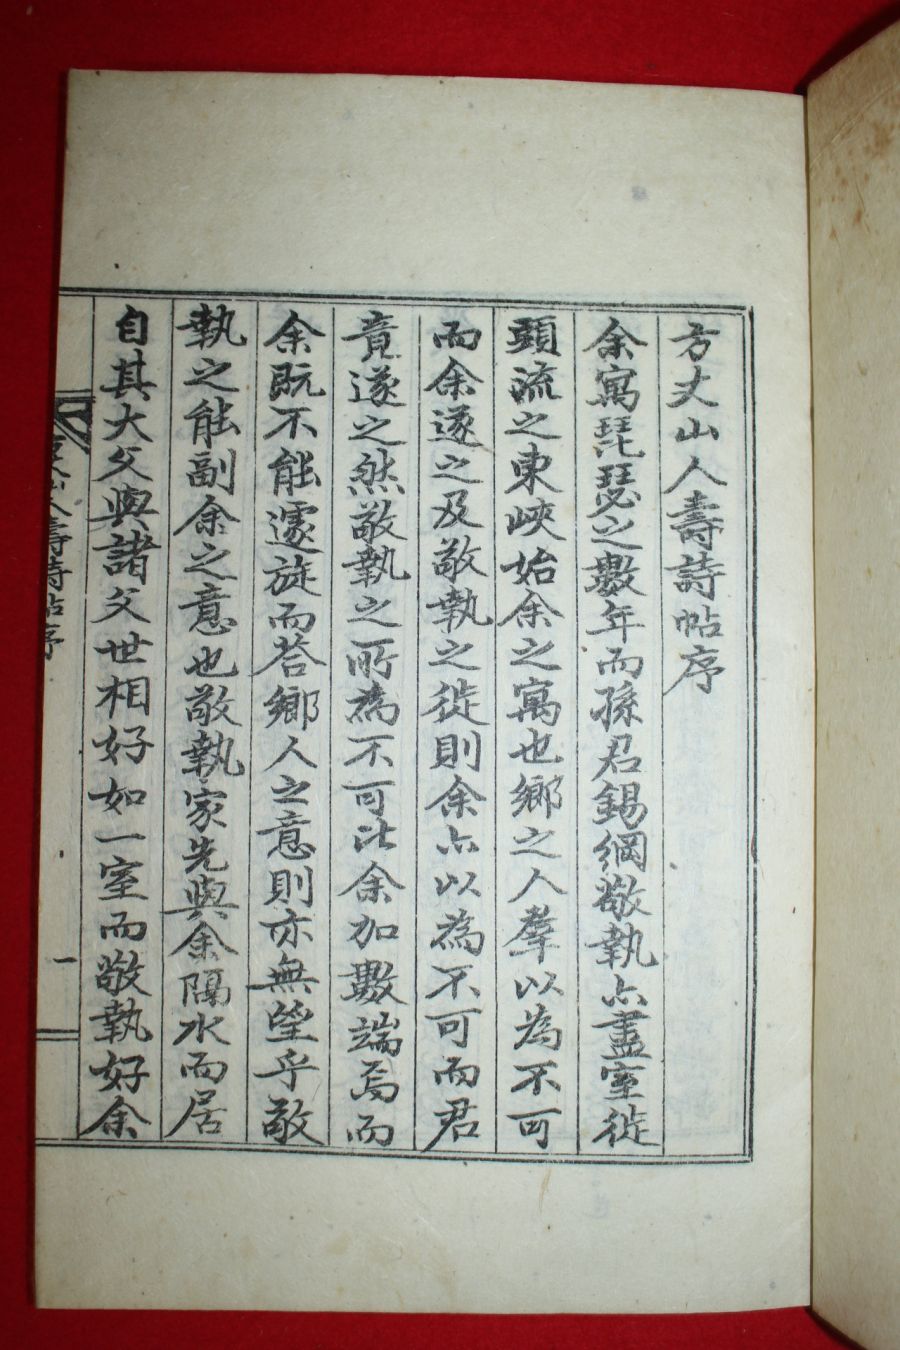 方丈山人壽詩帖序
余寓琵瑟之數年而孫君錫綱敬執亦盡室徙
頭流之東峽始余之寓也鄉之人羣以為不可
而余遂之及敬執之徙則余亦以為不可而君
竟遂之然敬執之所為不可比余加數端焉而
余既不能遽旋而荅鄉人之意則亦無望乎敬
執之能副余之意也敬執家先與余隔水而居
自其大父與諸父世相好如一室而敬執好余
山人壽詩帖序
一